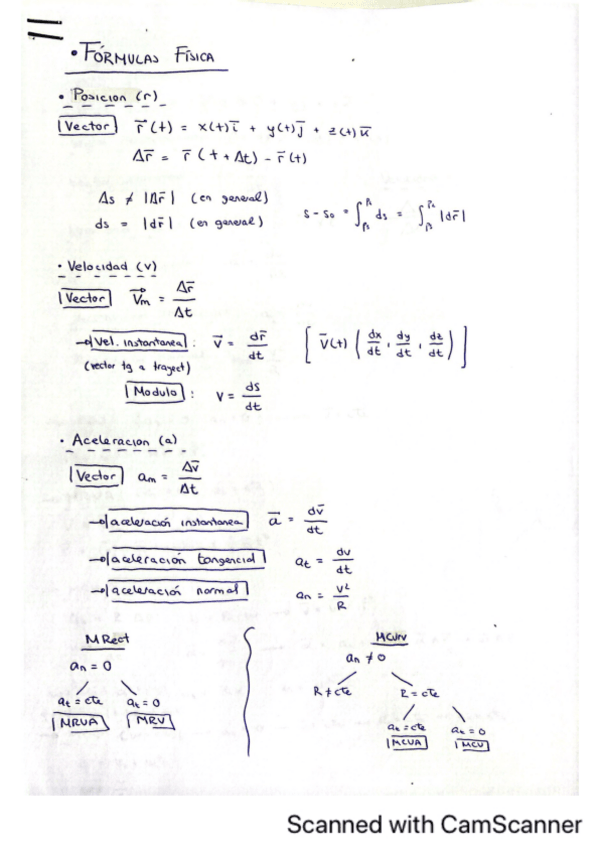 • FÓRMULAS FÍSICA
• Posicion (r)
Vector r⃗(t) = x(t)i̅ + y(t)j̅ + z(t)k̅
Δr̅ = r̅(t+Δt) - r̅(t)
Δs ≠ |Δr̅| (en general)
ds = |dr̅| (en general)
s - s₀ = ∫ ds = ∫ |dr̅|
• Velocidad (v)
Vector V⃗m = Δr̅/Δt
→ Vel. instantanea: v̅ = dr̅/dt [ v̅(t) ( dx/dt, dy/dt, dz/dt ) ]
(vector tg a trayect)
Modulo: v = ds/dt
• Aceleracion (a)
Vector am = Δv̅/Δt
→ aceleración instantanea a̅ = dv̅/dt
→ aceleración tangencial at = dv/dt
→ aceleración normal an = v²/R
MRect
an = 0
at = cte at = 0
MRUA MRU
MCurv
an ≠ 0
R ≠ cte R = cte
at = cte at = 0
MCUA MCU
Scanned with CamScanner